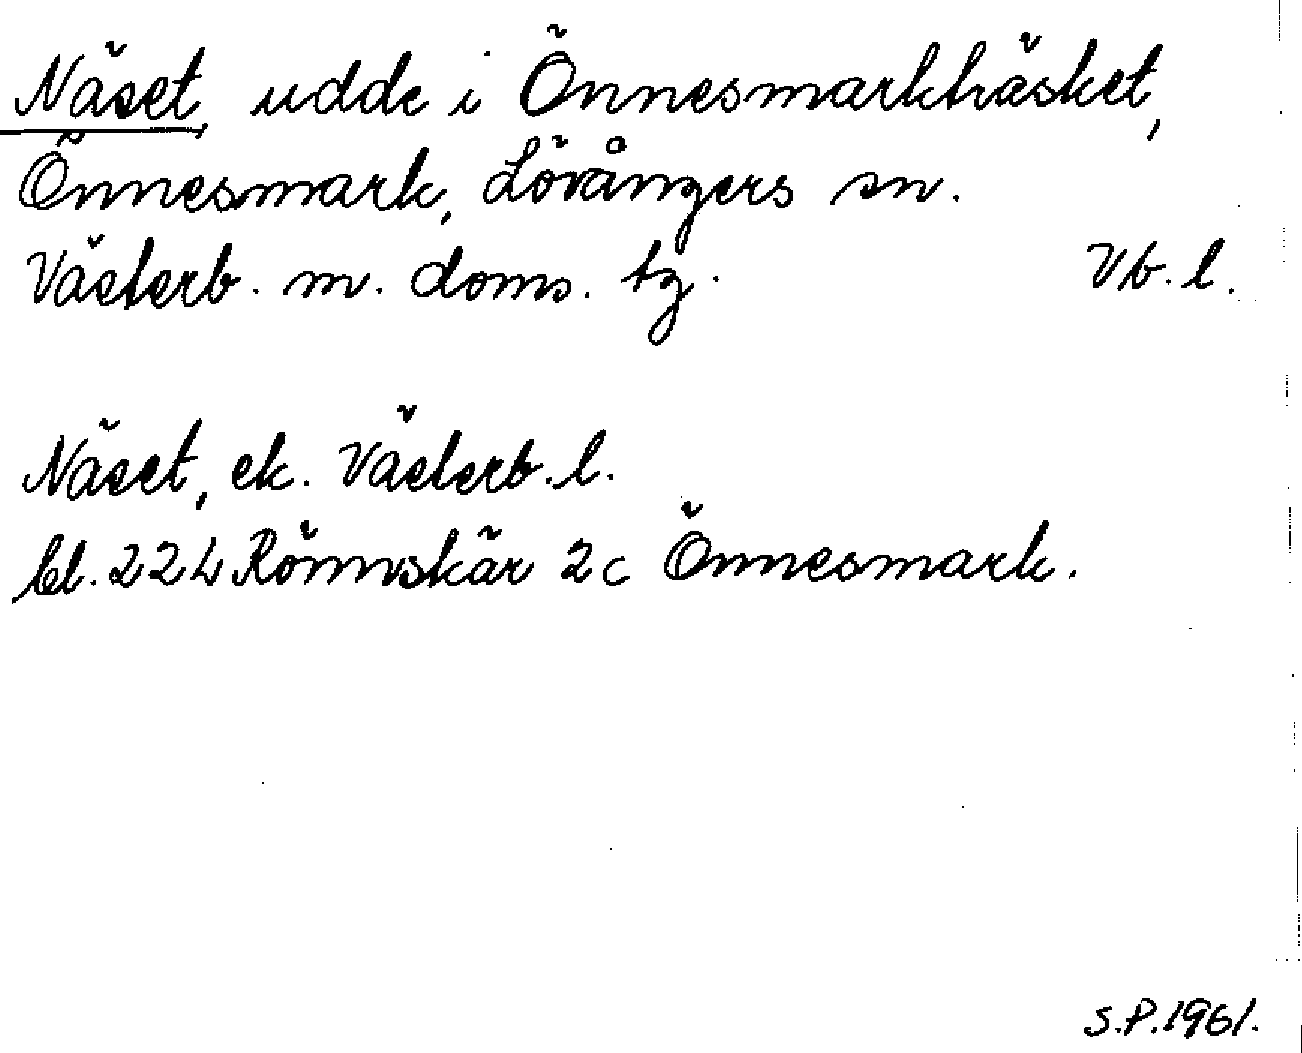 Näset, udde i Önnesmarkträsket,
Önnesmark, Lövångers sn.
Västerb. m. doms. tg. Vb. l.
Näset, ek. Västerb. l.
bl. 22 L Rönnskär 2c Önnesmark.
S.P. 1961.